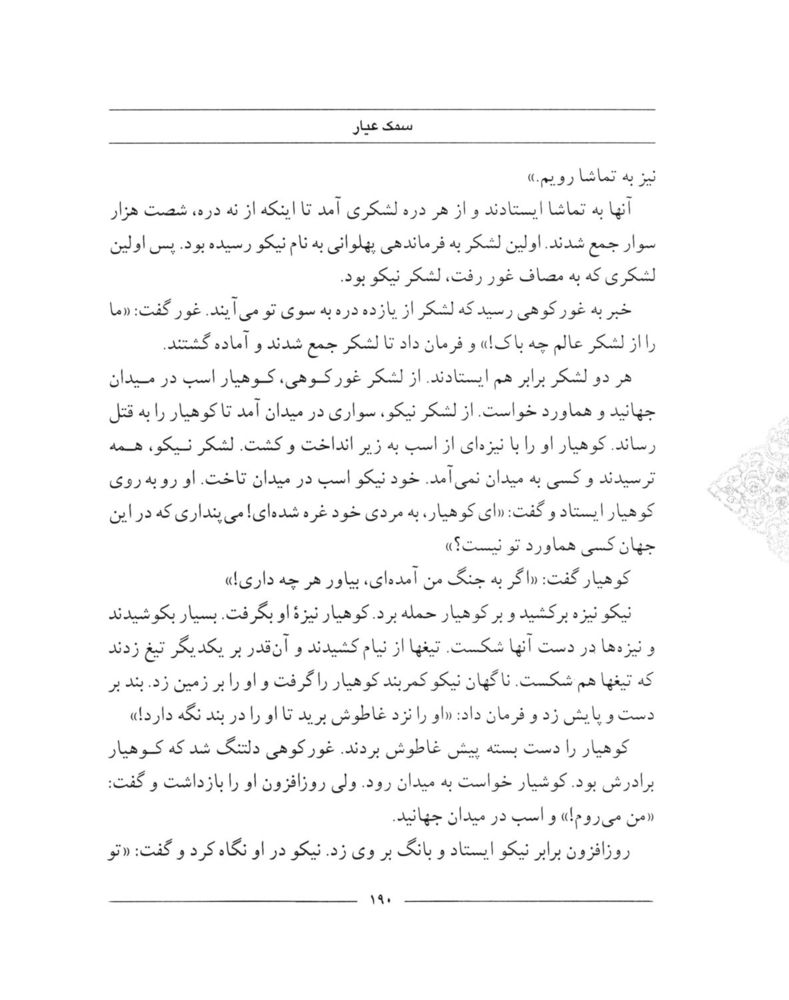 سمک عیار
نیز به تماشا رویم.»
آنها به تماشا ایستادند و از هر دره لشکری آمد تا اینکه از نه دره، شصت هزار
سوار جمع شدند. اولین لشکر به فرماندهی پهلوانی به نام نیکو رسیده بود. پس اولین
لشکری که به مصاف غور رفت، لشکر نیکو بود.
خبر به غورکوهی رسید که لشکر از یازده دره به سوی تو می‌آیند. غور گفت: «ما
را از لشکر عالم چه باک!» و فرمان داد تا لشکر جمع شدند و آماده گشتند.
هر دو لشکر برابر هم ایستادند. از لشکر غورکوهی، کوهیار اسب در میدان
جهانید و هماورد خواست. از لشکر نیکو، سواری در میدان آمد تا کوهیار را به قتل
رساند. کوهیار او را با نیزه‌ای از اسب به زیر انداخت و کشت. لشکر نیکو، همه
ترسیدند و کسی به میدان نمی‌آمد. خود نیکو اسب در میدان تاخت. او رو به روی
کوهیار ایستاد و گفت: «ای کوهیار، به مردی خود غره شده‌ای! می‌پنداری که در این
جهان کسی هماورد تو نیست؟»
کوهیار گفت: «اگر به جنگ من آمده‌ای، بیاور هر چه داری!»
نیکو نیزه برکشید و بر کوهیار حمله برد. کوهیار نیزهٔ او بگرفت. بسیار بکوشیدند
و نیزه‌ها در دست آنها شکست. تیغها از نیام کشیدند و آن‌قدر بر یکدیگر تیغ زدند
که تیغها هم شکست. ناگهان نیکو کمربند کوهیار را گرفت و او را بر زمین زد. بند بر
دست و پایش زد و فرمان داد: «او را نزد غاطوش برید تا او را در بند نگه دارد!»
کوهیار را دست بسته پیش غاطوش بردند. غورکوهی دلتنگ شد که کوهیار
برادرش بود. کوشیار خواست به میدان رود. ولی روزافزون او را بازداشت و گفت:
«من می‌روم!» و اسب در میدان جهانید.
روزافزون برابر نیکو ایستاد و بانگ بر وی زد. نیکو در او نگاه کرد و گفت: «تو
۱۹۰